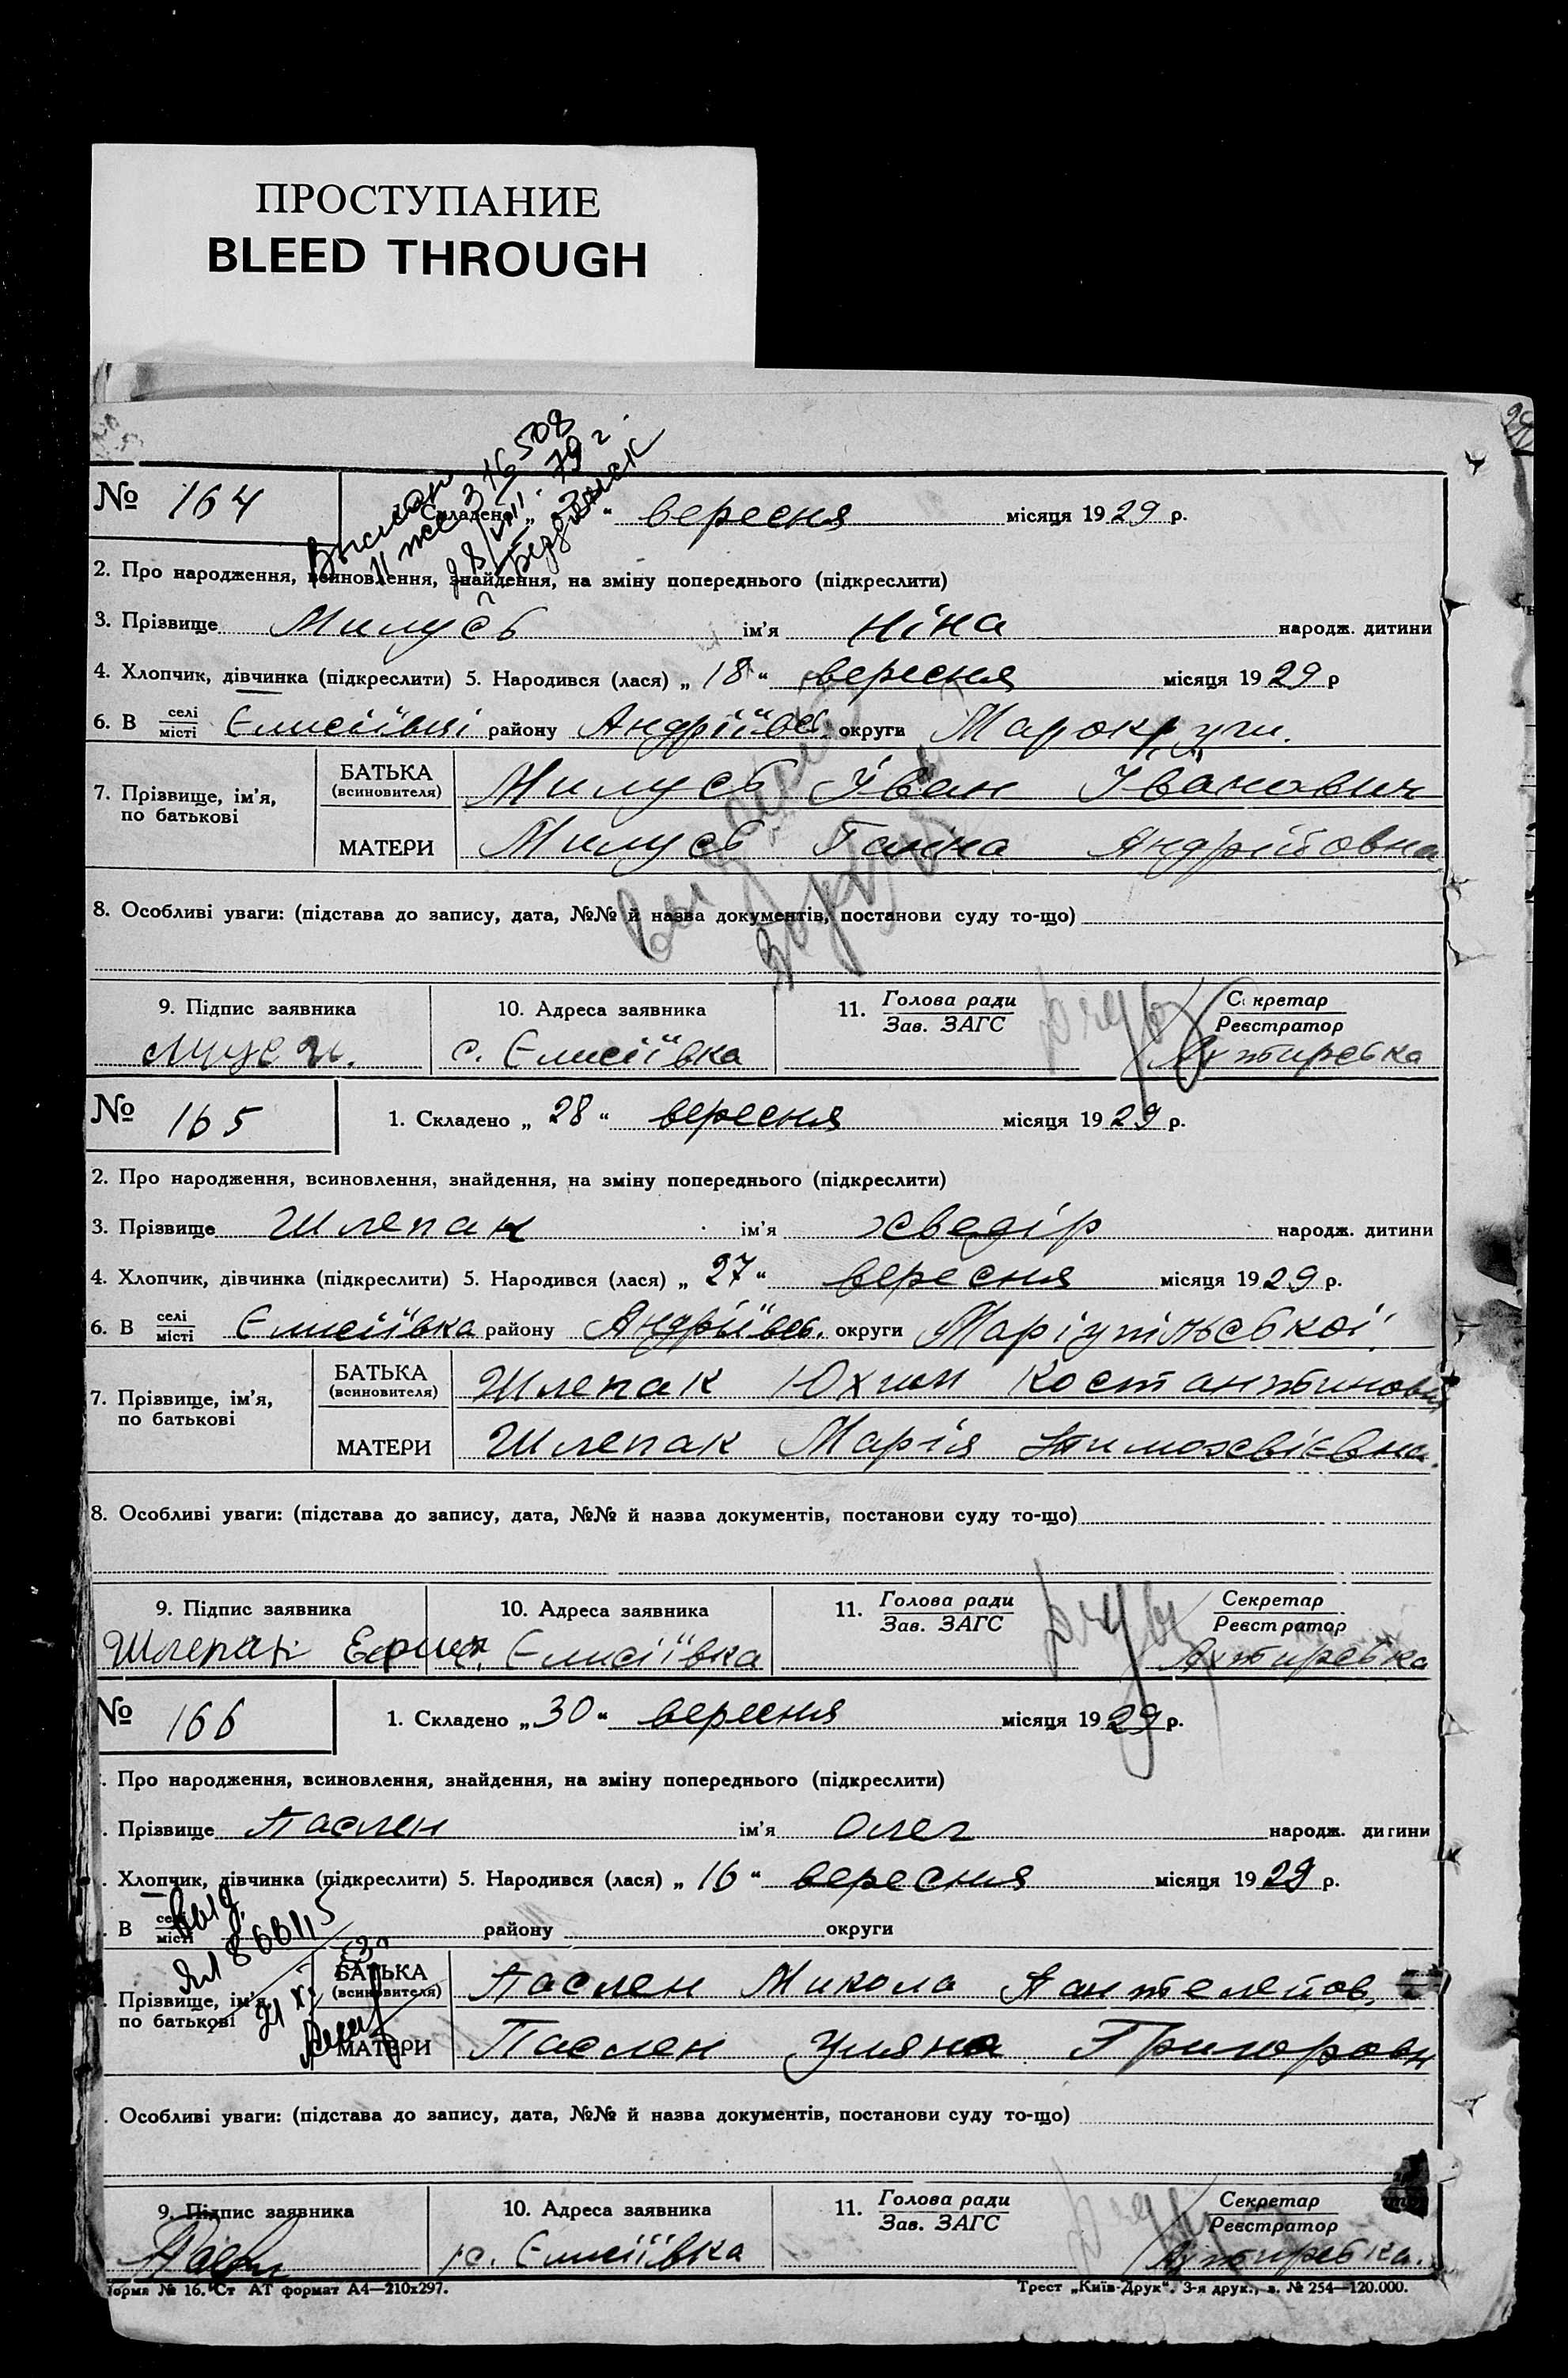 ПРОСТУПАНИЕ
BLEED THROUGH
№ 164
Складено „ “ вересня місяця 1929 р.
2. Про народження, всиновлення, знайдення, на зміну попереднього (підкреслити)
3. Прізвище Милусь ім’я Ніна народж. дитини
4. Хлопчик, дівчинка (підкреслити) 5. Народився (лася) „ 18 “ вересня місяця 1929 р
6. В селі/місті Єлисіївці району Андріївс. округи
7. Прізвище, ім’я, по батькові
БАТЬКА (всиновителя) Милусь Іван Іванович
МАТЕРИ Милусь Ганна Андрійовна
8. Особливі уваги: (підстава до запису, дата, №№ й назва документів, постанови суду то-що)
9. Підпис заявника
10. Адреса заявника с. Єлисіївка
11. Голова ради / Зав. ЗАГС
Секретар / Реєстратор
№ 165
1. Складено „ 28 “ вересня місяця 1929 р.
2. Про народження, всиновлення, знайдення, на зміну попереднього (підкреслити)
3. Прізвище Шлепак ім’я Хведір народж. дитини
4. Хлопчик, дівчинка (підкреслити) 5. Народився (лася) „ 27 “ вересня місяця 1929 р.
6. В селі/місті Єлисіївка району Андріївсь. округи Маріупільської
7. Прізвище, ім’я, по батькові
БАТЬКА (всиновителя) Шлепак Юхим
МАТЕРИ Шлепак Марія
8. Особливі уваги: (підстава до запису, дата, №№ й назва документів, постанови суду то-що)
9. Підпис заявника Шлепак
10. Адреса заявника с. Єлисіївка
11. Голова ради / Зав. ЗАГС
Секретар / Реєстратор
№ 166
1. Складено „ 30 “ вересня місяця 1929 р.
. Про народження, всиновлення, знайдення, на зміну попереднього (підкреслити)
. Прізвище Паслен ім’я Олег народж. дитини
. Хлопчик, дівчинка (підкреслити) 5. Народився (лася) „ 16 “ вересня місяця 1929 р.
. В селі/місті району округи
. Прізвище, ім’я, по батькові
БАТЬКА (всиновителя) Паслен Микола
МАТЕРИ Паслен Уляна Григоровн
. Особливі уваги: (підстава до запису, дата, №№ й назва документів, постанови суду то-що)
9. Підпис заявника
10. Адреса заявника с. Єлисіївка
11. Голова ради / Зав. ЗАГС
Секретар / Реєстратор
Форма № 16. Ст АТ формат А4—210х297.
Трест „Київ-Друк“. 3-я друк., з. № 254—120.000.